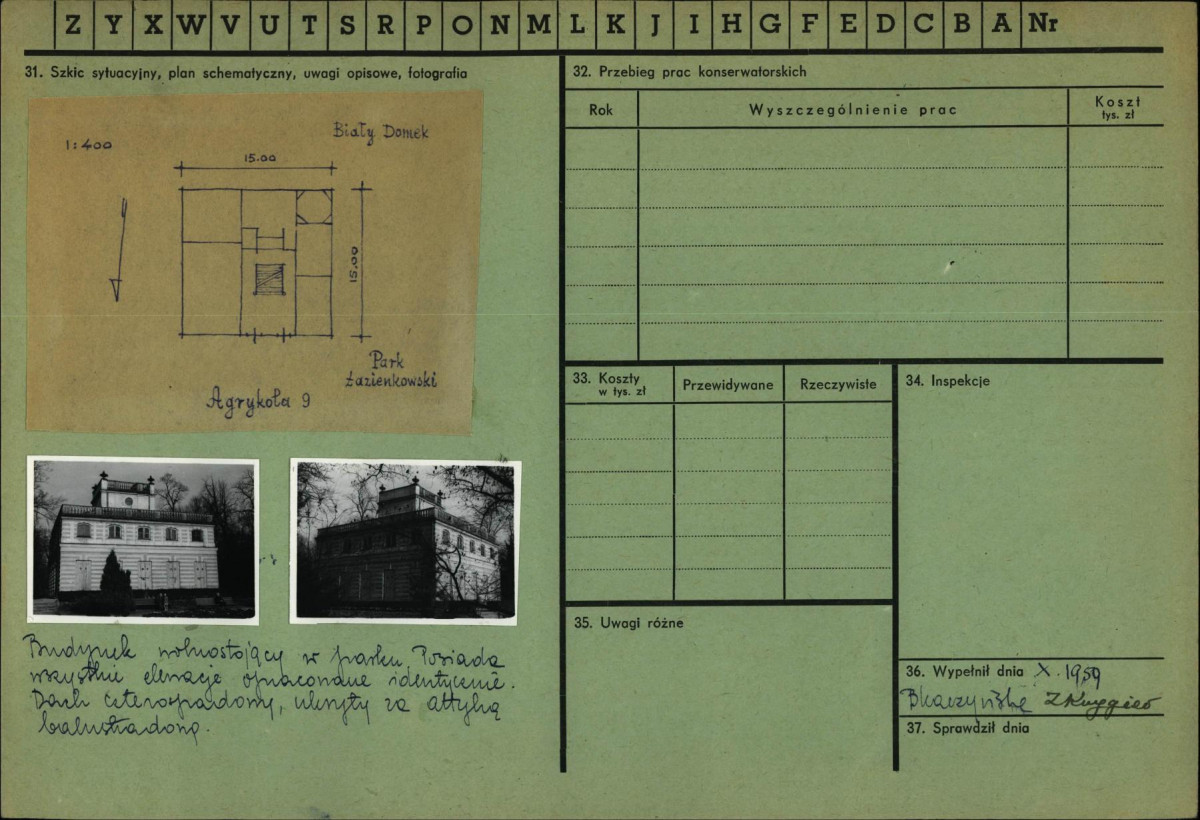 Z Y X W V U T S R P O N M L K J I H G F E D C B A Nr
31. Szkic sytuacyjny, plan schematyczny, uwagi opisowe, fotografia
1:400
Biały Domek
15.00
15.00
Park
Łazienkowski
Agrykola 9
Budynek wolnostojący w parku. Posiada
wszystkie elewacje opracowane identycznie.
Dach czterospadowy, ukryty za attyką
balustradową.
32. Przebieg prac konserwatorskich
Rok
Wyszczególnienie prac
Koszt
tys. zł
33. Koszty
w tys. zł
Przewidywane
Rzeczywiste
34. Inspekcje
35. Uwagi różne
36. Wypełnił dnia X. 1959
37. Sprawdził dnia